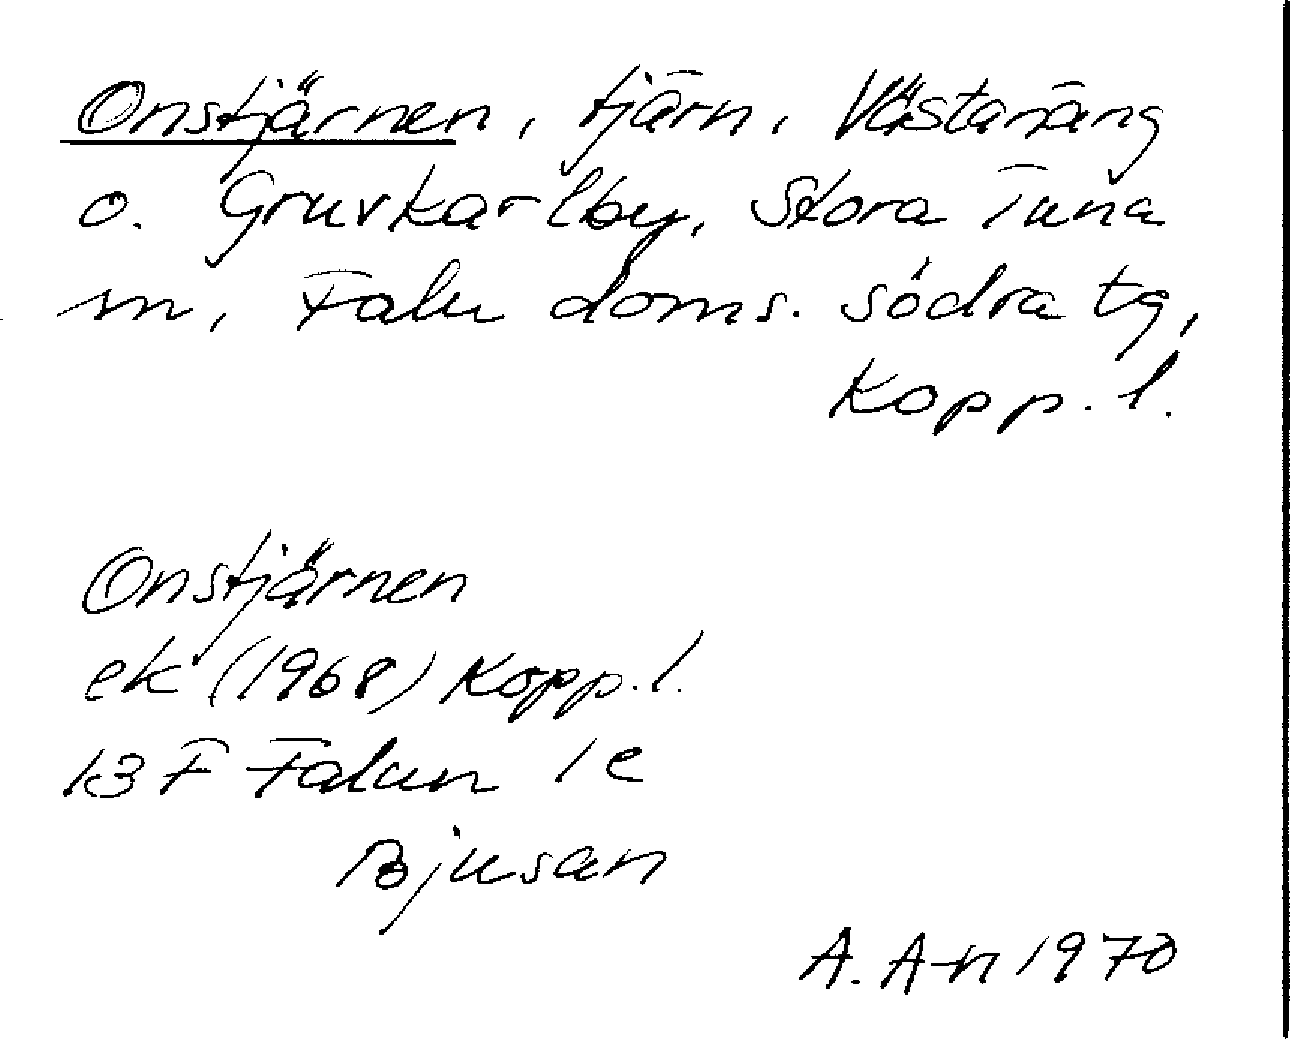 Onstjärnen, tjärn, Västanäng
o. Gruvkarlby, Stora Tuna
sn, Falu doms. södra tg,
Kopp. l.
Onstjärnen
ek (1968) Kopp. l.
13 F Falun 1 e
Bjusan
A. A-n 1970